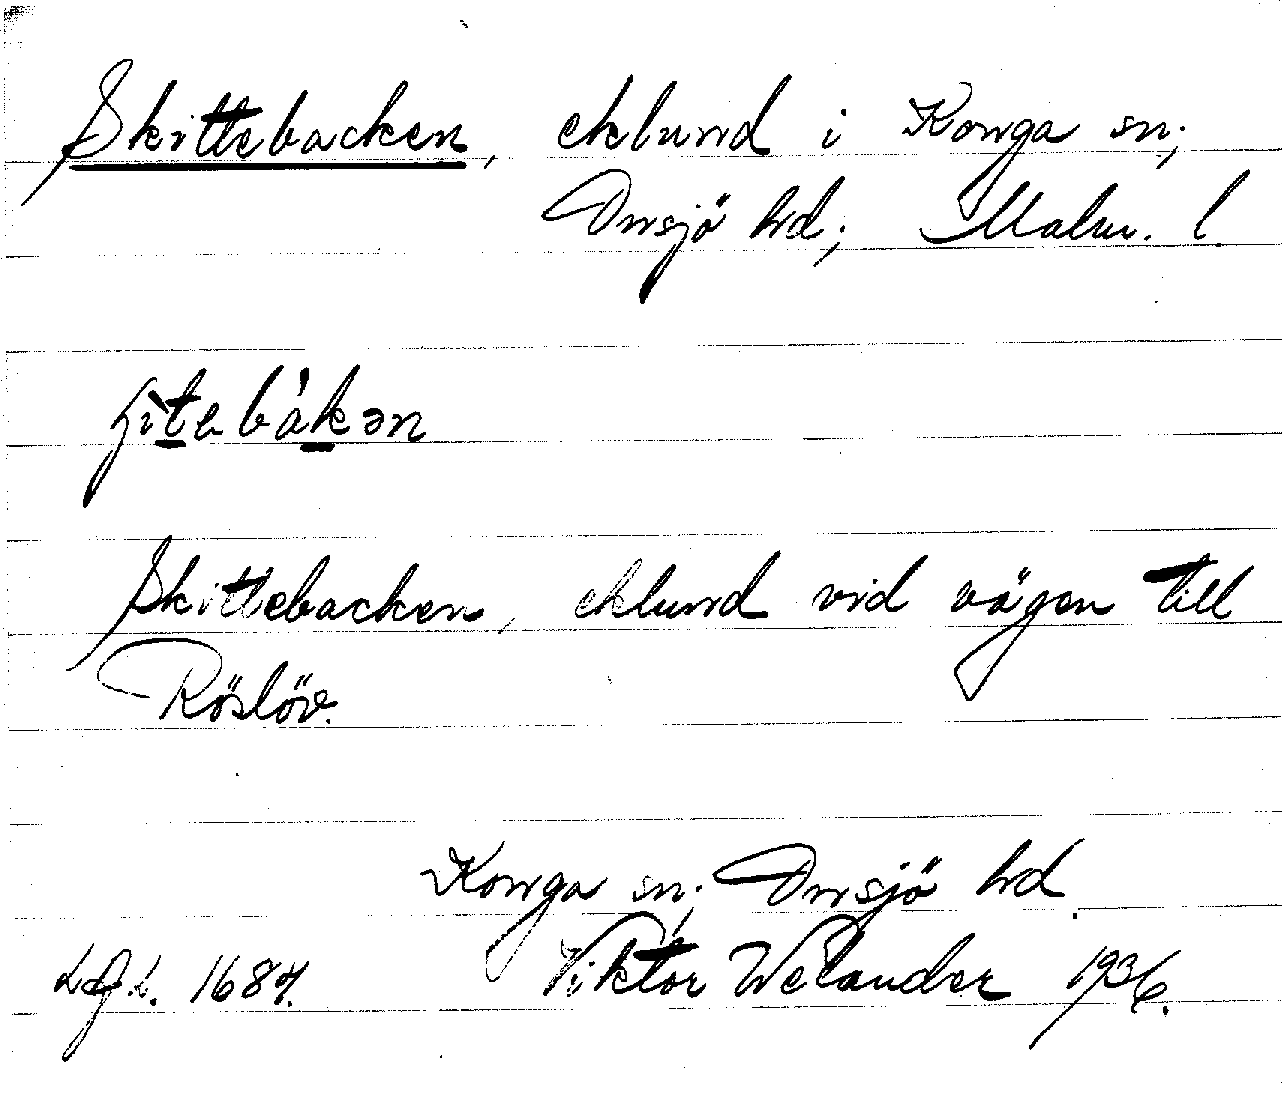 Skittebacken, eklund i Konga sn;
Onsjö hd; Malm. l.
ʃìtebákən
Skittebacken, eklund vid vägen till
Röslöv.
Konga sn; Onsjö hd.
L.G.L. 1687. Viktor Welander 1936.